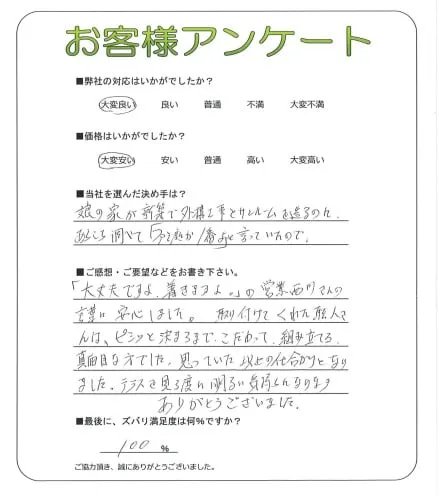 お客様アンケート
■弊社の対応はいかがでしたか?
大変良い 良い 普通 不満 大変不満
■価格はいかがでしたか?
大変安い 安い 普通 高い 大変高い
■当社を選んだ決め手は?
娘の家が新築で外構工事とサンルームを造るのに、
あちこち調べて「 1番よ」と言っていたので。
■ご感想・ご要望などをお書き下さい。
「大丈夫ですよ、着きますよ。」の営業西川さんの
言葉に安心しました。取り付けてくれた職人さ
んは、ピシッと決まるまで、こだわって、組み立てる
真面目な方でした。思っていた以上の仕上がりとなり
ました。テラスを見る度に明るい気持ちになります
ありがとうございました。
■最後に、ズバリ満足度は何%ですか?
100 %
ご協力頂き、誠にありがとうございました。